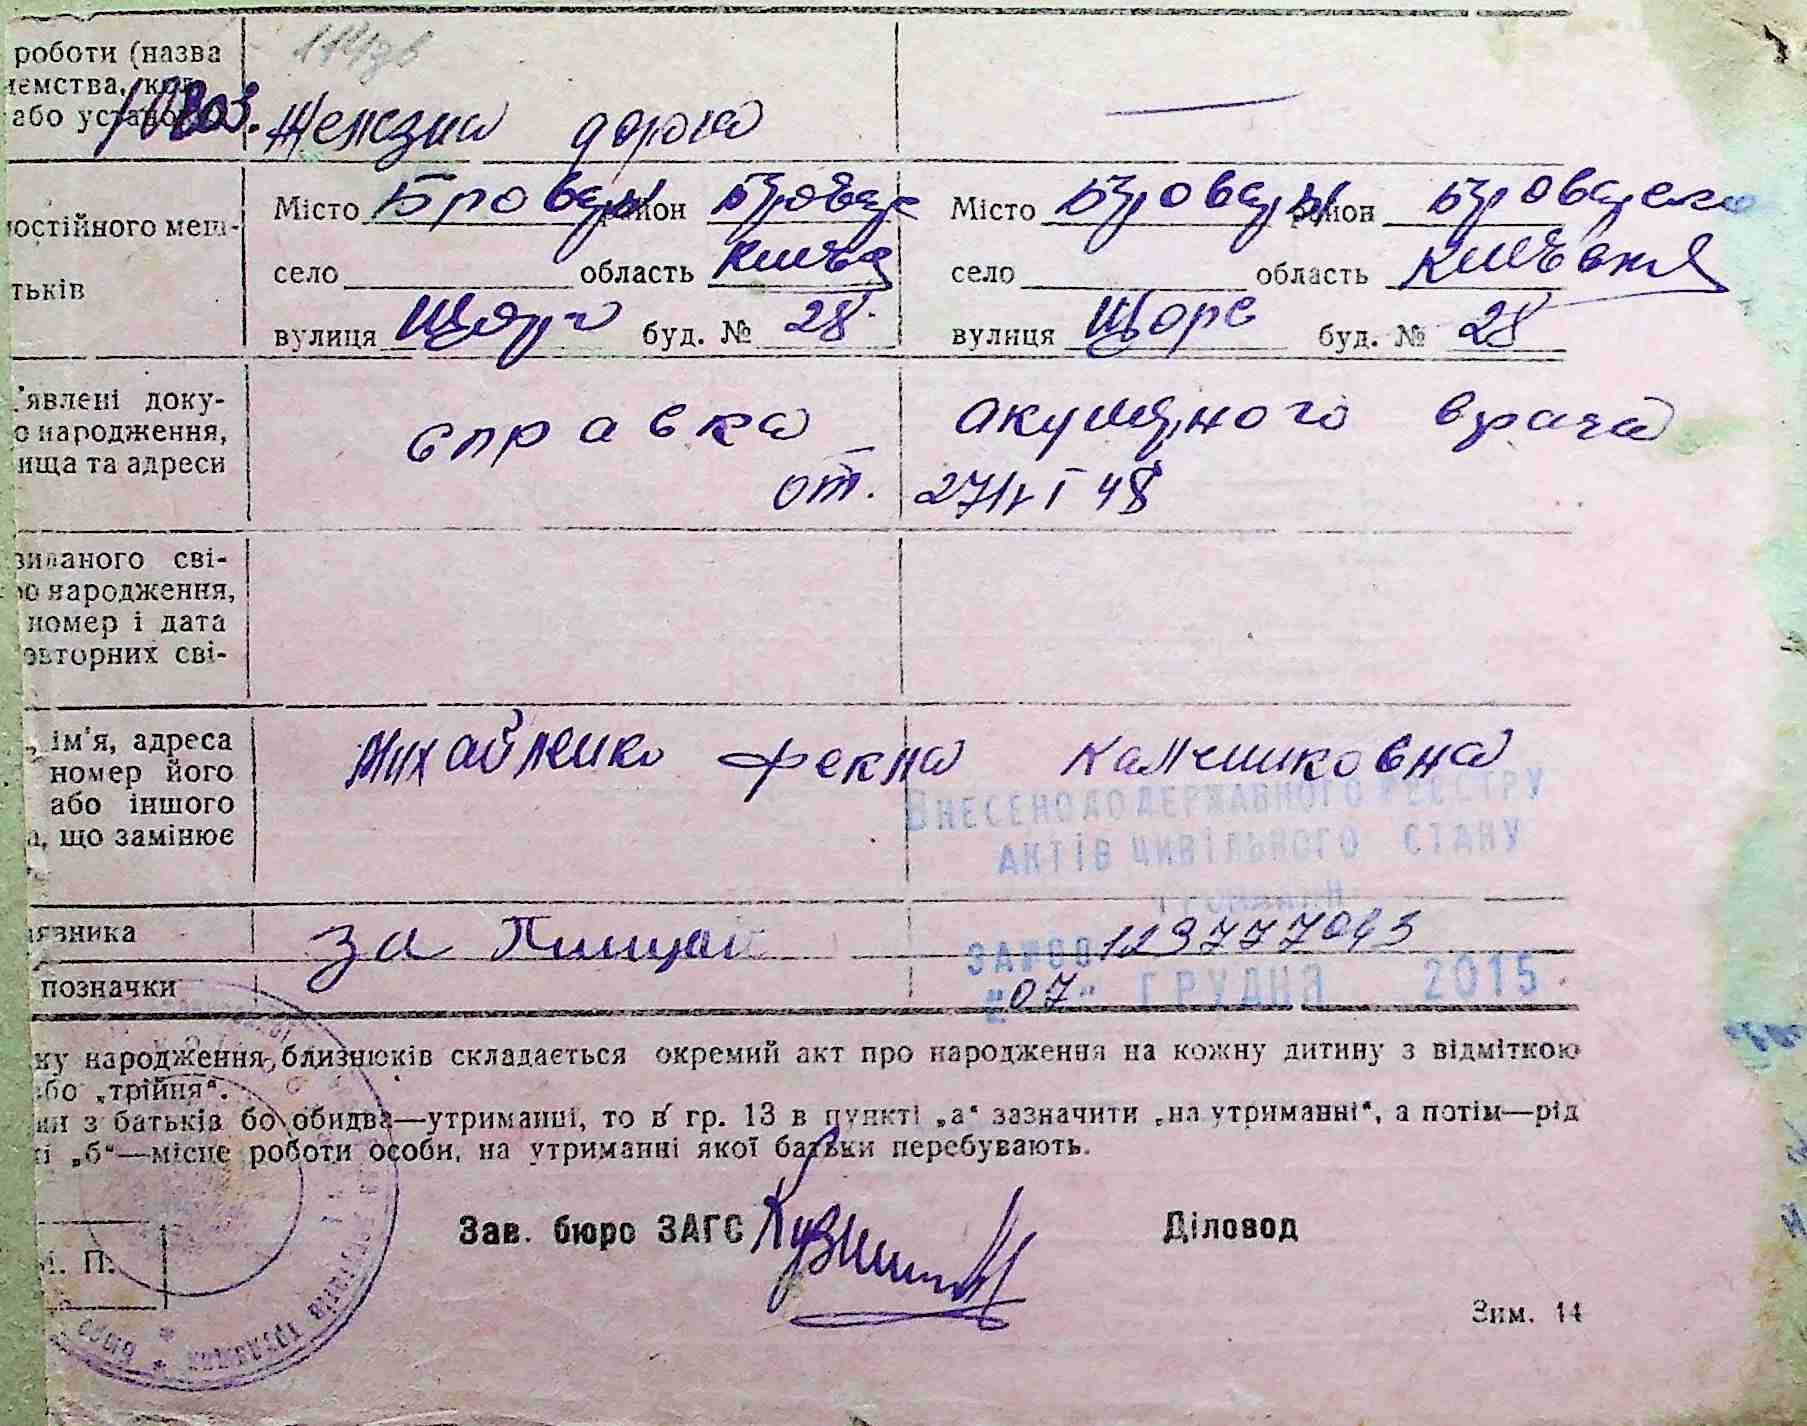 роботи (назва
ємства,
або установ
Железна дорога
Місто Бровары район Бровар Місто Бровары район Броварско
остійного меш-
село область село область Киевская
тьків
вулиця Щорс буд. № 28 вулиця Щорс буд. № 28
явлені доку-
о народження,
ища та адреси
справка акушерного врача
от. 48
виданого сві-
ро народження,
номер і дата
овторних сві-
ім'я, адреса
номер його
або іншого
а, що замінює
Михайленко Фекла
ВНЕСЕНО ДО ДЕРЖАВНОГО РЕЄСТРУ
АКТІВ ЦИВІЛЬНОГО СТАНУ
ГРОМАДЯН
аявника
за
позначки
"07" ГРУДНЯ 2015.
ку народження близнюків складається окремий акт про народження на кожну дитину з відміткою
або „трійня“.
ин з батьків бо обидва—утриманці, то в гр. 13 в пункті „а“ зазначити „на утриманні“, а потім—рід
і „б“—місце роботи особи, на утриманні якої батьки перебувають.
Зав. бюро ЗАГС Діловод
М. П.
Зим. 14